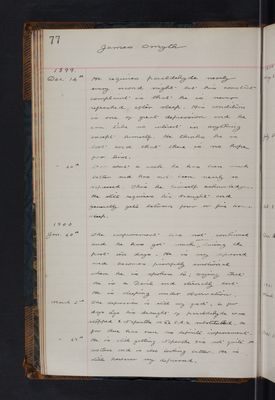 77
James Smyth
1899
Dec 14th He requires paraldehyde nearly
every second night but his constant
complaint is that he is never
refreshed after sleep. His condition
is one of great depression and he
can take no interest in anything
except himself. He thinks he is
lost and that there is no hope
for him.
For about a week he has been much
better and has not been nearly so
depressed. This he himself acknowledges.
He still requires his draught and
generally gets between four or five hours
sleep.
1900
Jan. 20th The improvement has not continued
and he has got much during the
first six days. He is very depressed
and becomes promptly emotional
when he is spoken to, saying that
he is a Devil and utterly lost.
He is sleeping under observation.
March 2nd The depression is still very great, a few
days ago his draught of paraldehyde was
stopped & substituted. So
far there has been no definite improvement.
He is still getting and not quite so
restless and is also looking better. He is
still however very depressed.